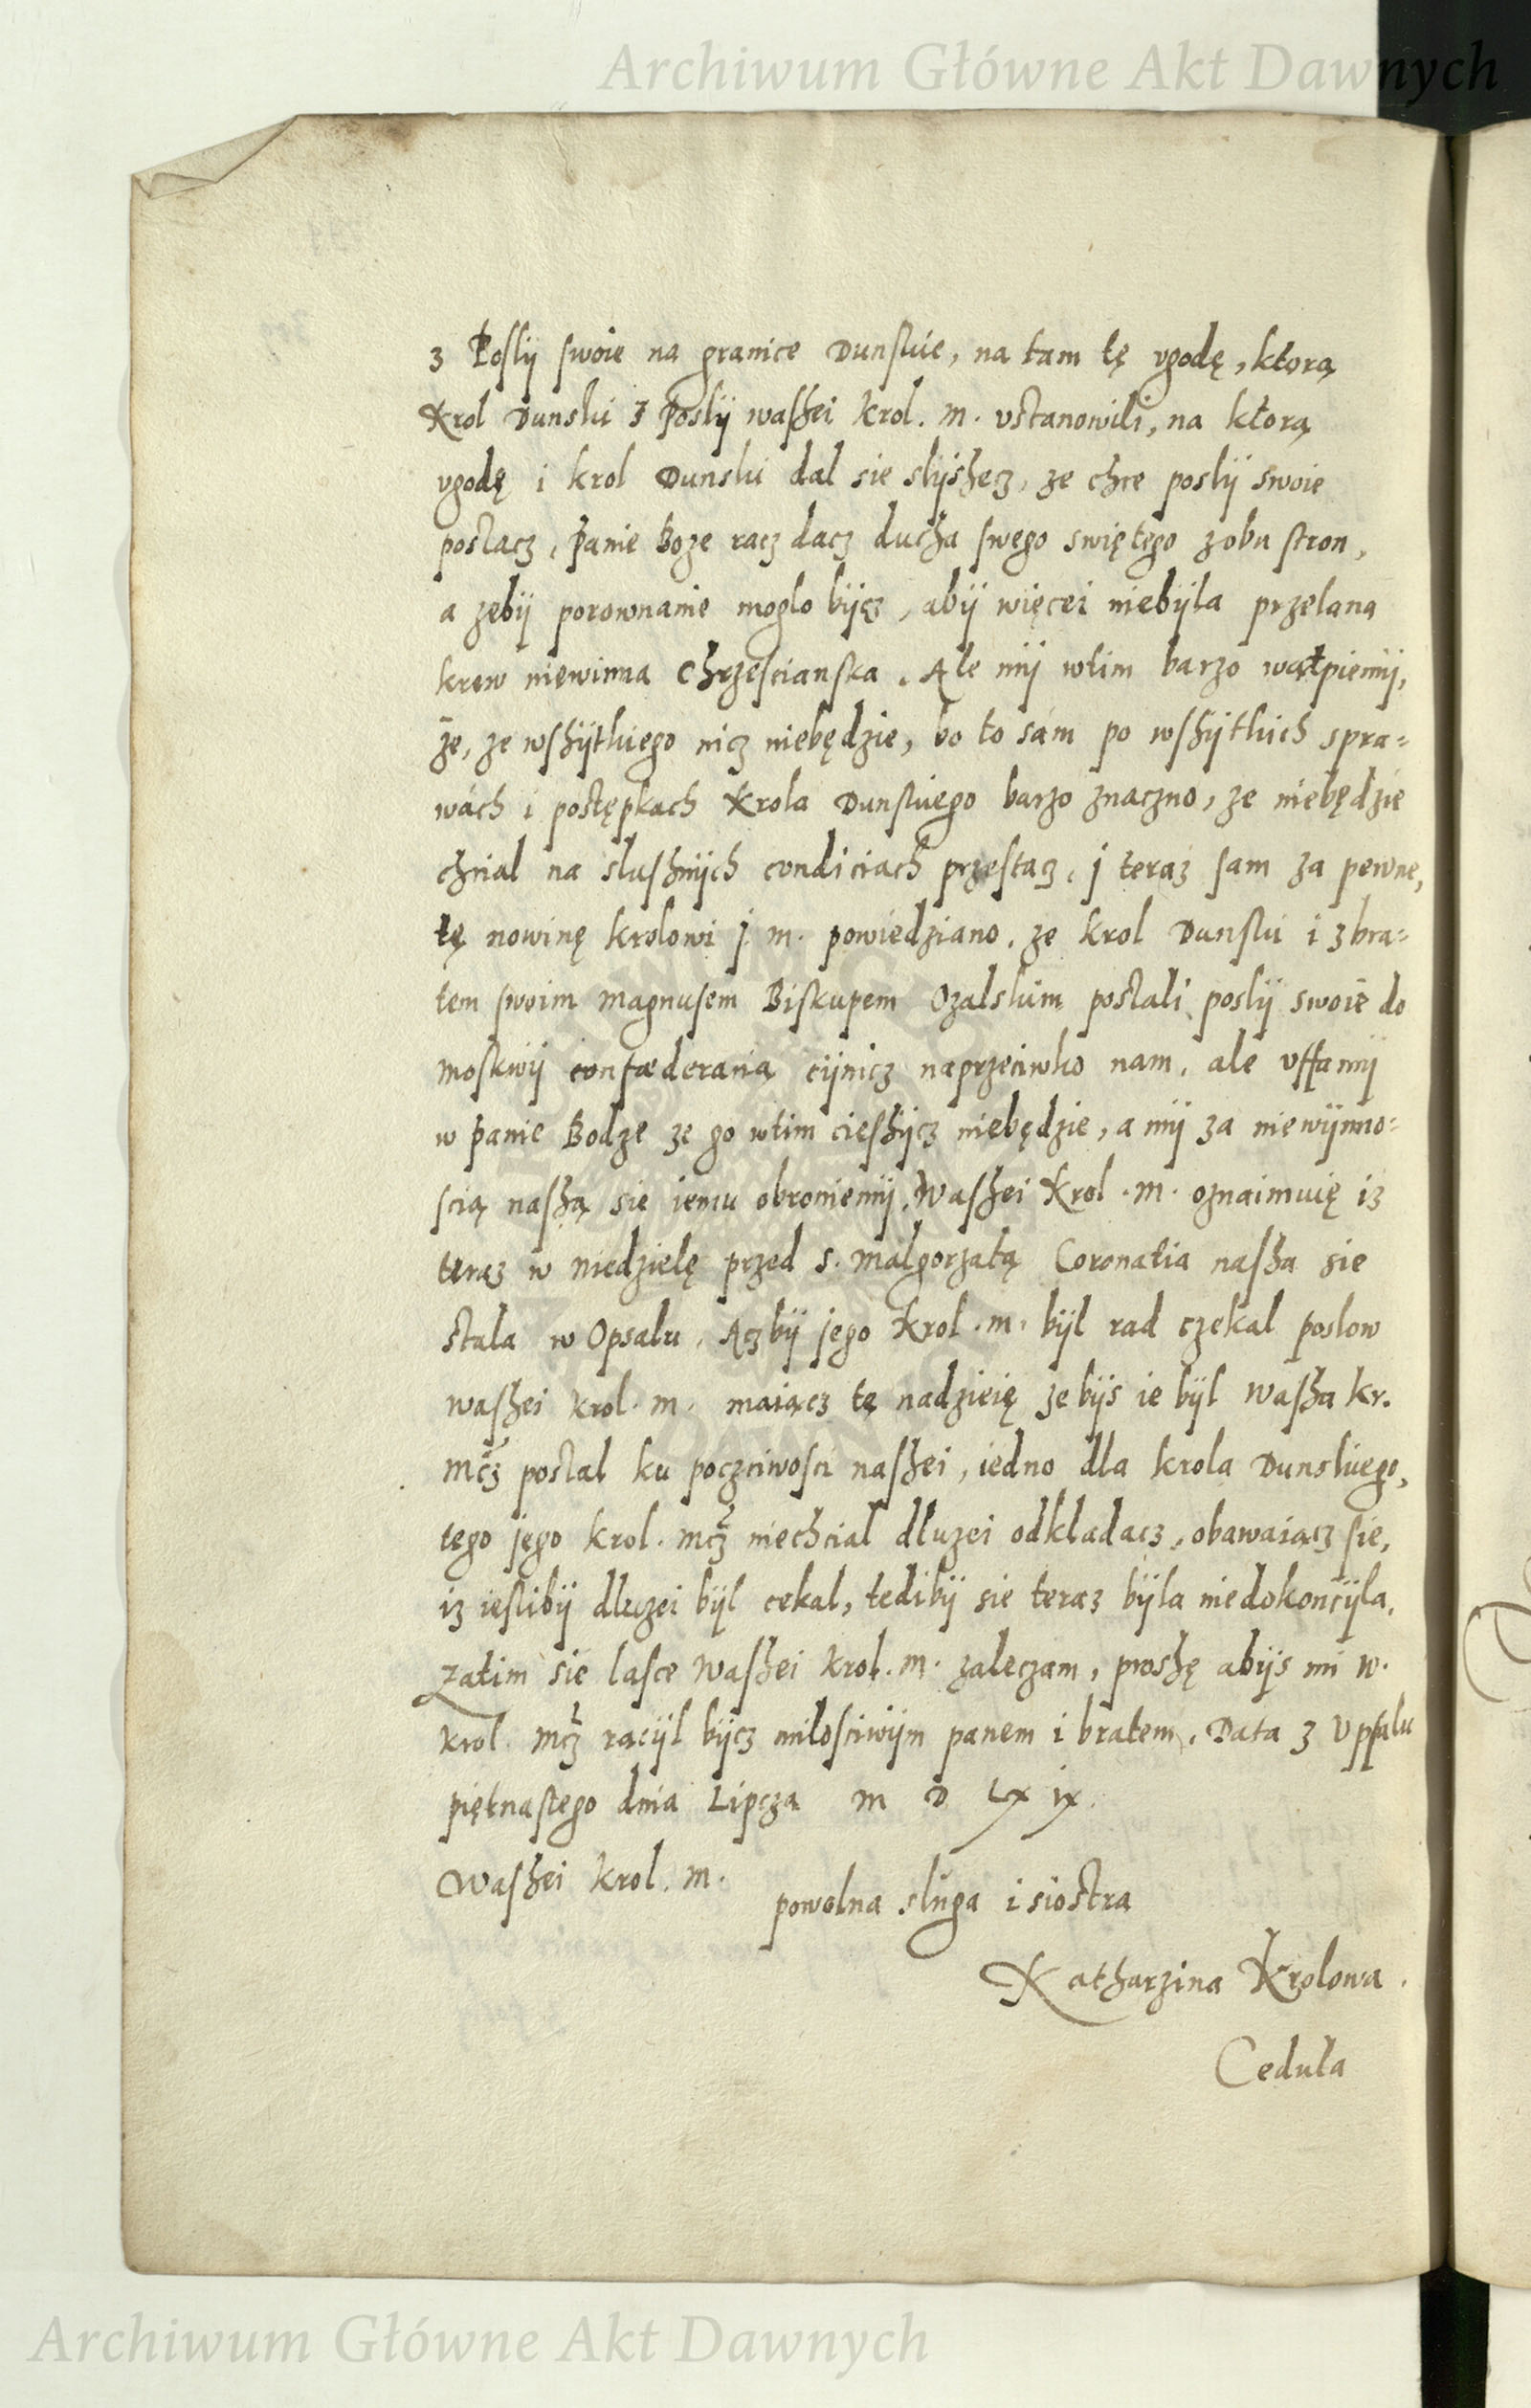 Archiwum Główne Akt Dawnych
z Posly swoie na granice Dunskie, na tam tę vgodę, ktorą
Krol Dunski z Posly waszei krol. m. vstanowili, na ktorą
vgodę i krol Dunski dal sie slyszecz, ze chce posly swoie
poslacz, Panie Boze racz dacz ducha swego swiętego z obu stron,
a zeby porownanie moglo bycz, aby więcei niebyla przelana
krew niewinna Chrzescianska. Ale my wtim barzo wątpiemy,
że, ze wszytkiego nicz niebędzie, bo to sam po wszytkich spra=
wach i postępkach Krola Dunskiego barzo znaczno, ze niebędzie
chcial na slusznych condiciach przestacz, j teraz sam za pewne,
tę nowinę krolowi j. m. powiedziano, ze krol Dunski i z bra=
tem swoim Magnusem Biskupem Ozalskim poslali posly swoie do
moskwy confæderacią cynicz naprzeciwko nam, ale vffamy
w panie Bodze ze go wtim cieszycz niebędzie, a my za niewynno=
scią naszą sie iemu obroniemy. Waszei Krol. m. oznaimuię iz
teraz w niedzielę przed s. Malgorzatą Coronatia nasza sie
stala w Opsalu. Aczby jego Krol. m. byl rad czekal poslow
waszei krol. m. maiącz tę nadzieię ze bys ie byl wasza kr.
mcz poslal ku poczciwosci naszei, iedno dla krola Dunskiego,
tego jego krol. mcz niechcial dluzei odkladacz, obawaiącz sie,
iz iesliby dluzei byl cekal, tediby sie teraz byla niedokoncyla.
Zatim sie lasce Waszei krol. m. zaleczam, proszę abys mi w.
krol. mcz racyl bycz milosciwym panem i bratem. Data z Vpsalu
piętnastego dnia Lipcza M D LX ix.
Waszei krol. m.
powolna sluga i siostra
Katharzina Krolowa.
Cedula
Archiwum Główne Akt Dawnych